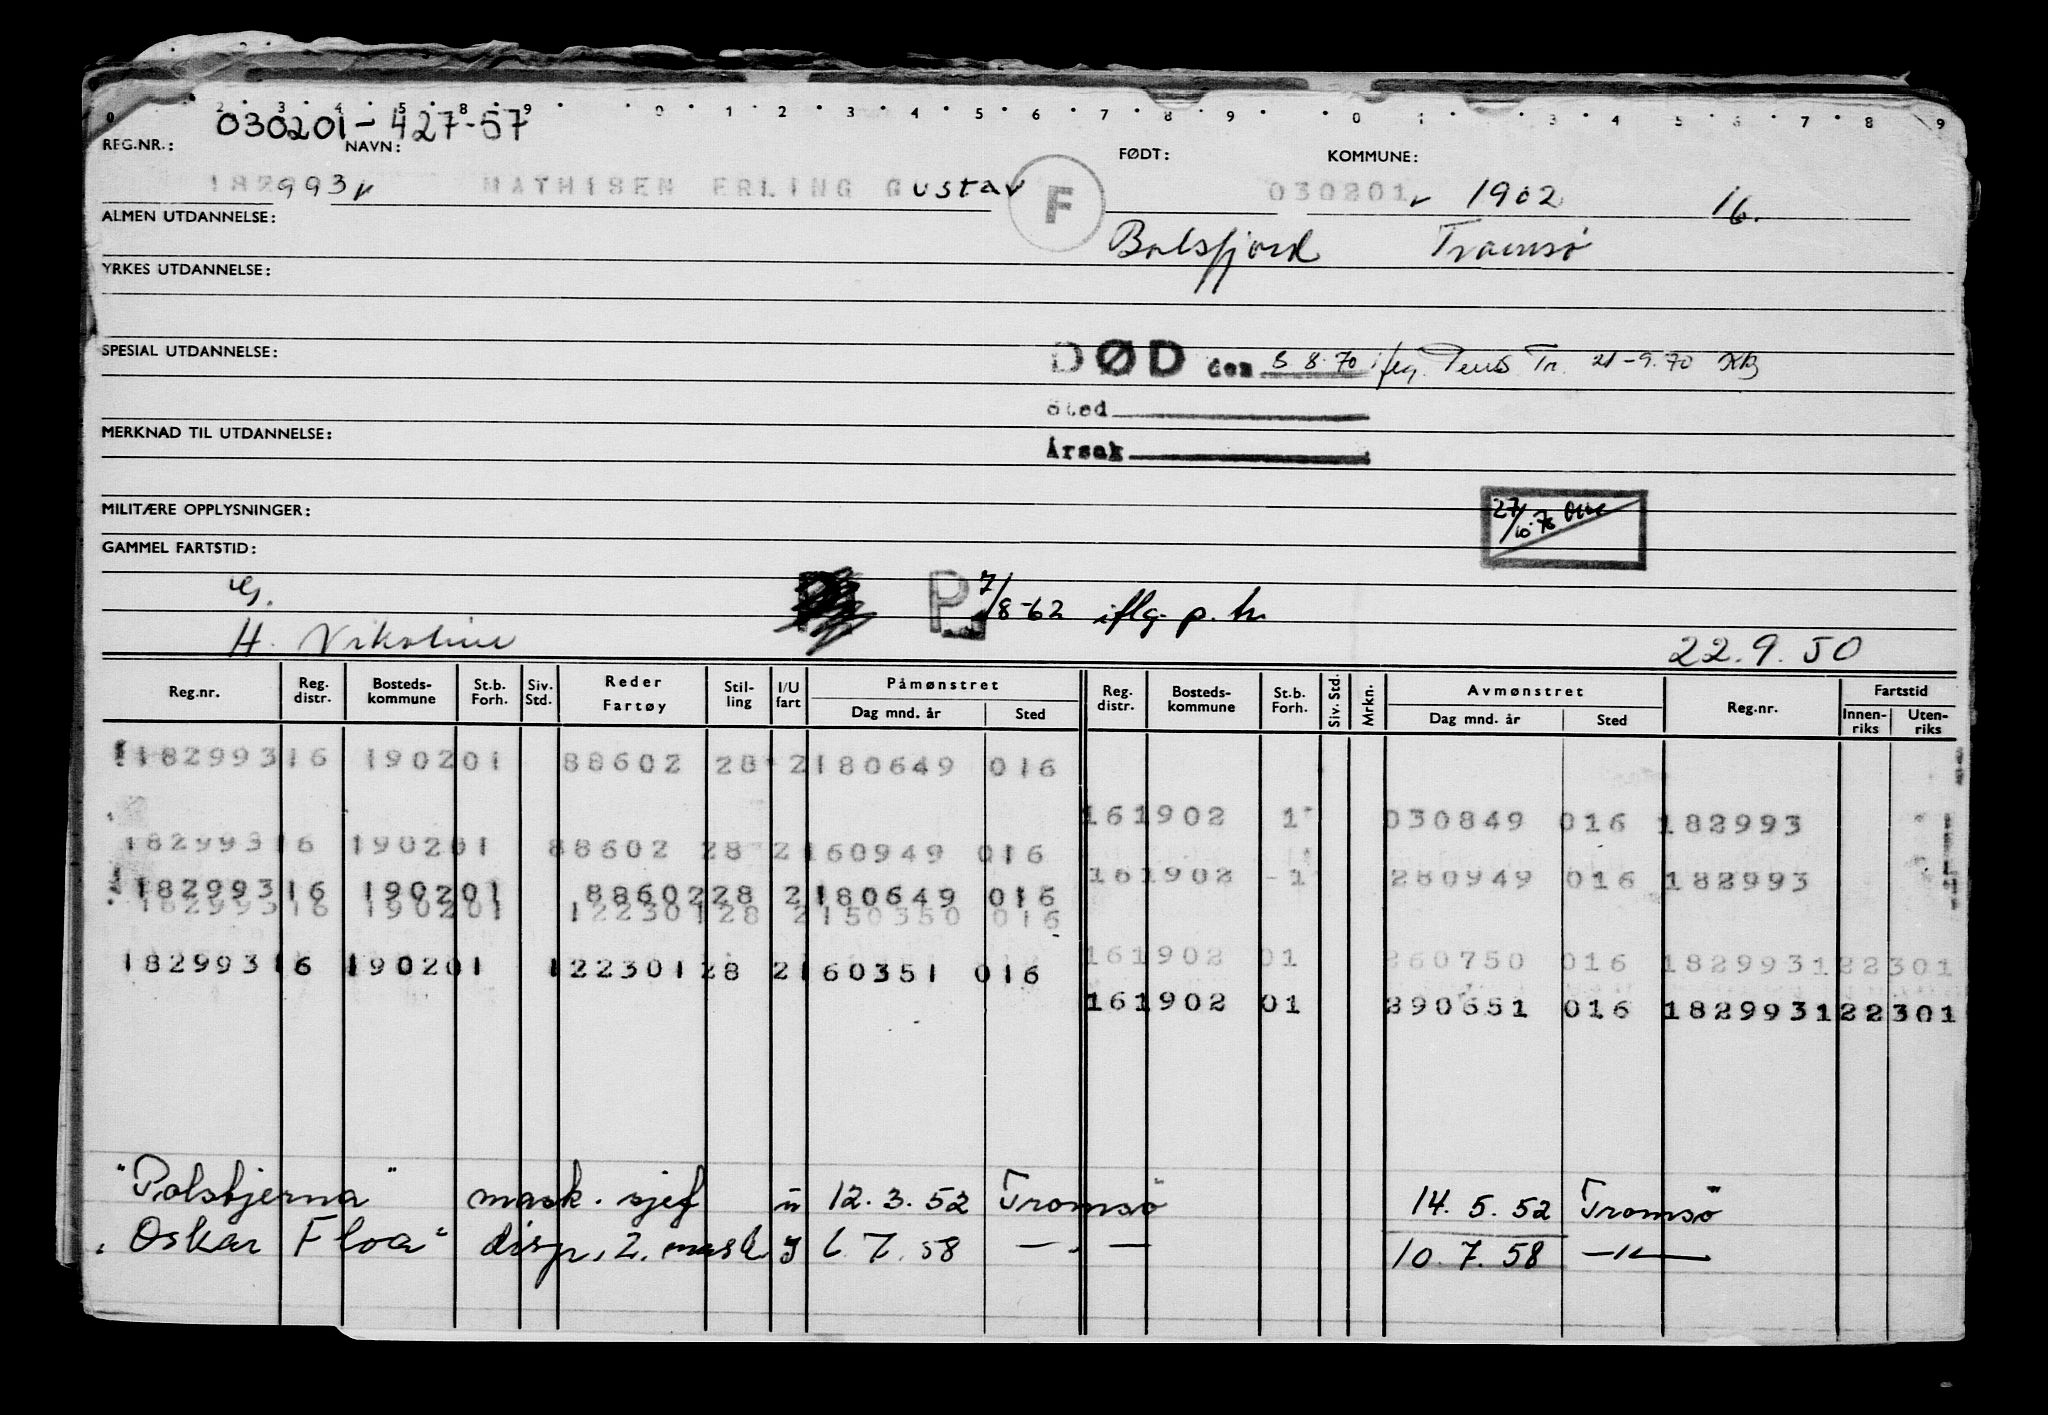 2 3 4 5 8 9 0 1 2 3 4 5 6 7 8 9 0 1 3 4 5 6 7 8 9
030201-427-57
REG.NR.: NAVN: FØDT: KOMMUNE:
182993 MATHISEN ERLING Gustav F 030201 1902 16.
ALMEN UTDANNELSE:
Balsfjord Tromsø
YRKES UTDANNELSE:
SPESIAL UTDANNELSE:
DØD den 3.8.70 ifлg. Pens Tr. 21-9.70
Sted
MERKNAD TIL UTDANNELSE:
Årsak
MILITÆRE OPPLYSNINGER:
27/10-70
GAMMEL FARTSTID:
G.
P. 7/8-62 iflg. p. tr.
H. Nikoline 22.9.50
Reg.nr. Reg. distr. Bosteds-kommune St.b. Forh. Siv. Std. Reder Fartøy Stil-ling I/U fart Påmønstret Dag mnd. år Sted Reg. distr. Bosteds-kommune St.b. Forh. Siv. Std. Mrkn. Avmønstret Dag mnd. år Sted Reg.nr. Fartstid Innen-riks Uten-riks
182993 16 1902 01 88602 28 2 180649 016
16 1902 1 030849 016 182993
182993 16 1902 01 88602 28 2 160949 016
16 1902 1 280949 016 182993
182993 16 1902 01 88602 28 2 180649 016
182993 16 1902 01 122301 28 2 150350 016
16 1902 01 260750 016 182993 122301
182993 16 1902 01 122301 28 2 160351 016
16 1902 01 290651 016 182993 122301
"Polsbjerna" mask. sjef u 12.3.52 Tromsø 14.5.52 Tromsø
"Oskar Floa" disp. 2. mask 6.7.58 — " — 10.7.58 — " —